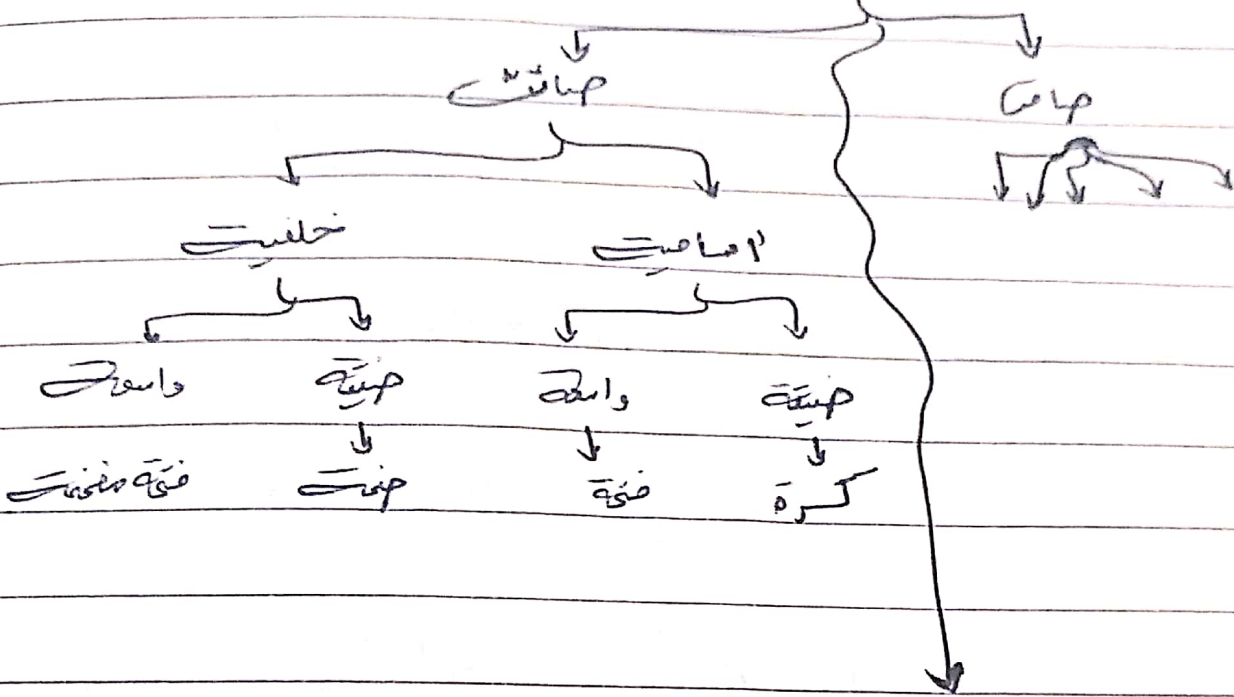 صامت صائت
أمامية خلفية
ضيقة واسعة ضيقة واسعة
كسرة فتحة ضمة فتحة مفخمة